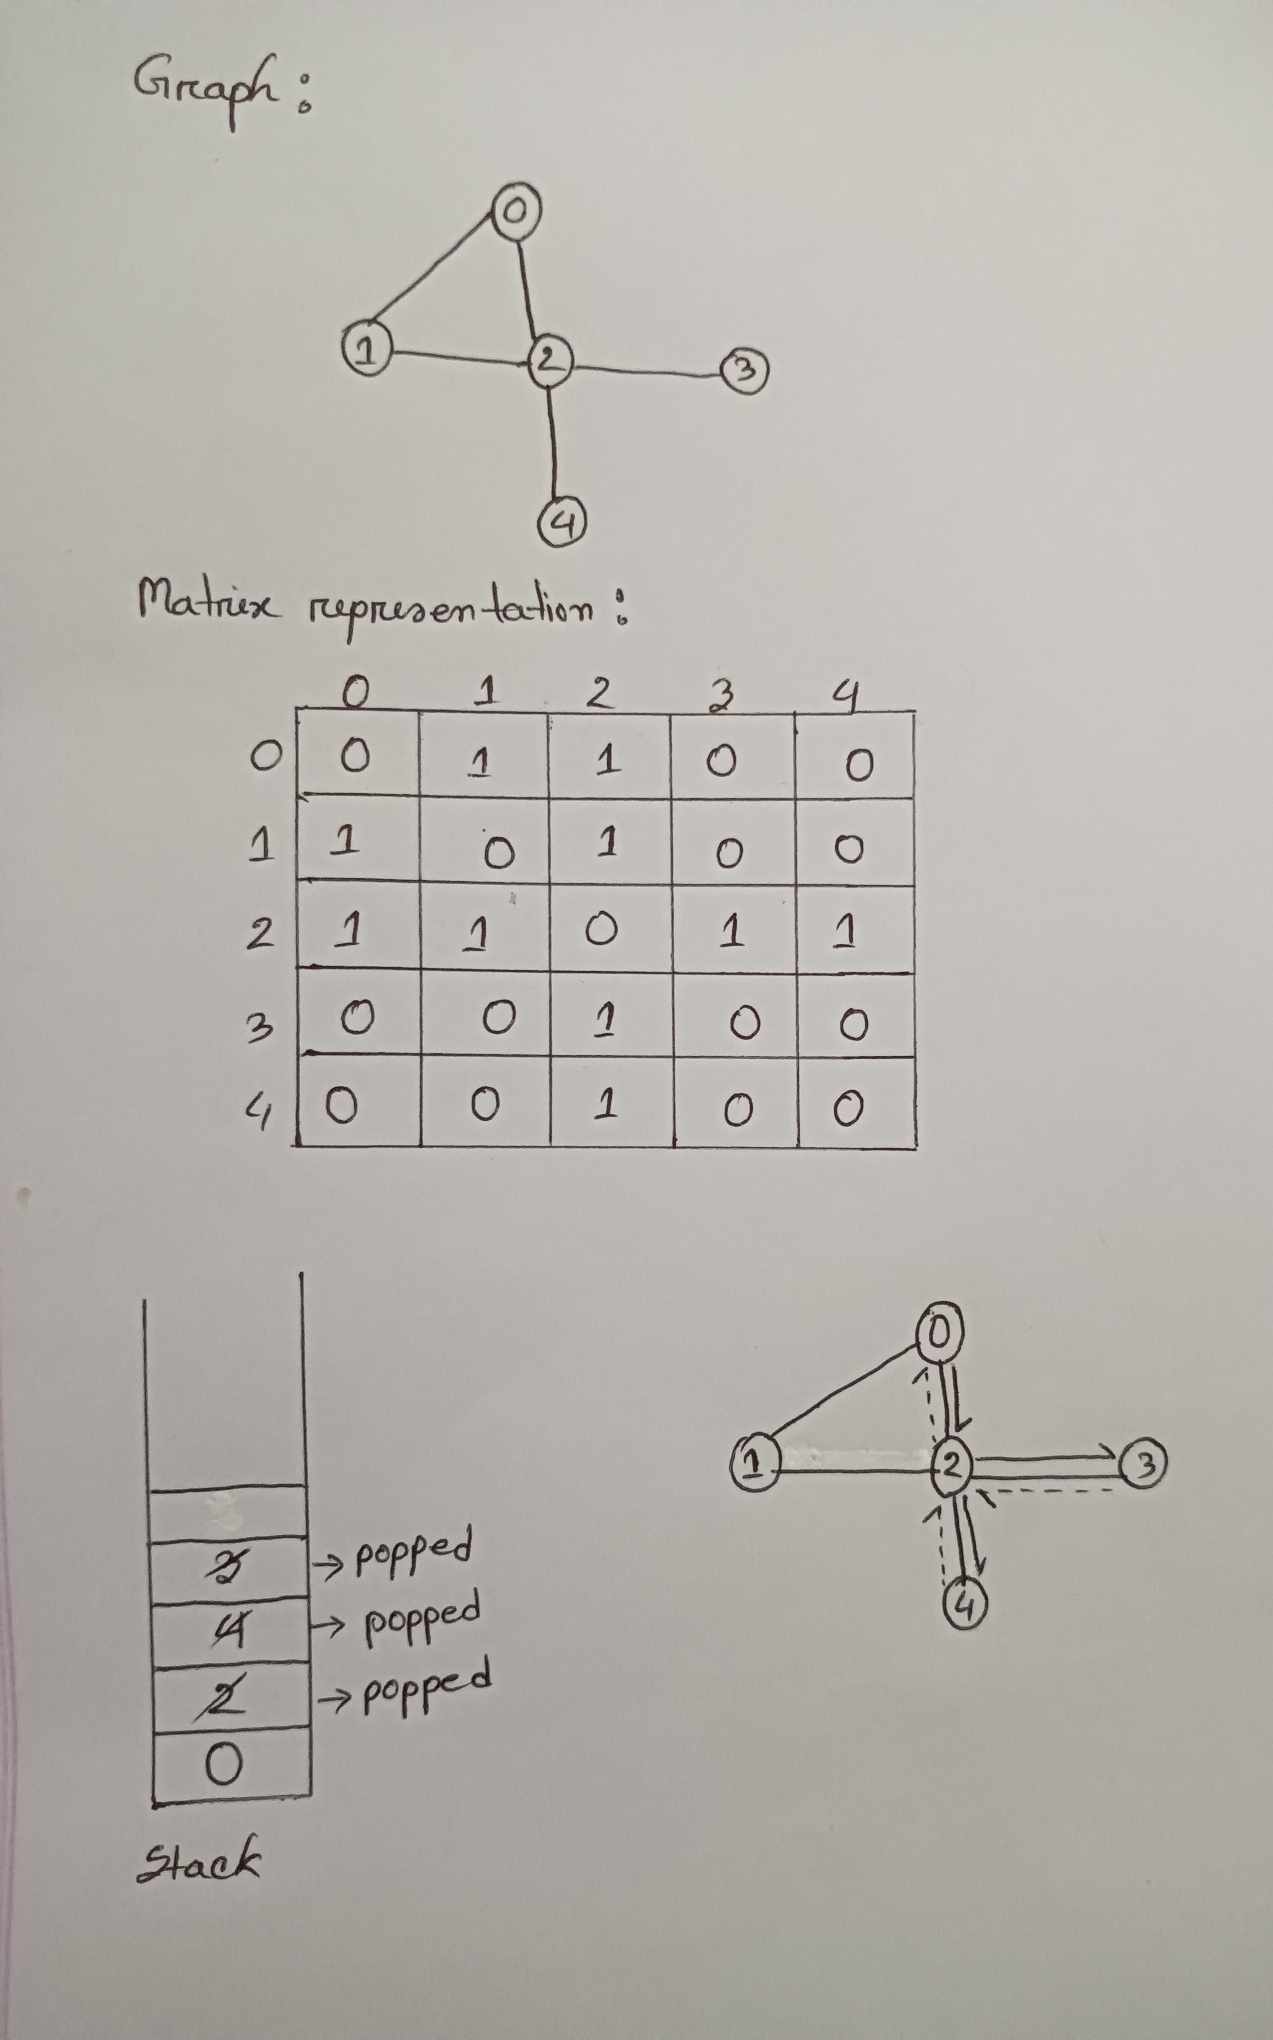 Graph:
0
1 2 3
4
Matrix representation:
0 1 2 3 4
0 0 1 1 0 0
1 1 0 1 0 0
2 1 1 0 1 1
3 0 0 1 0 0
4 0 0 1 0 0
3 → popped
4 → popped
2 → popped
0
Stack
0
1 2 3
4